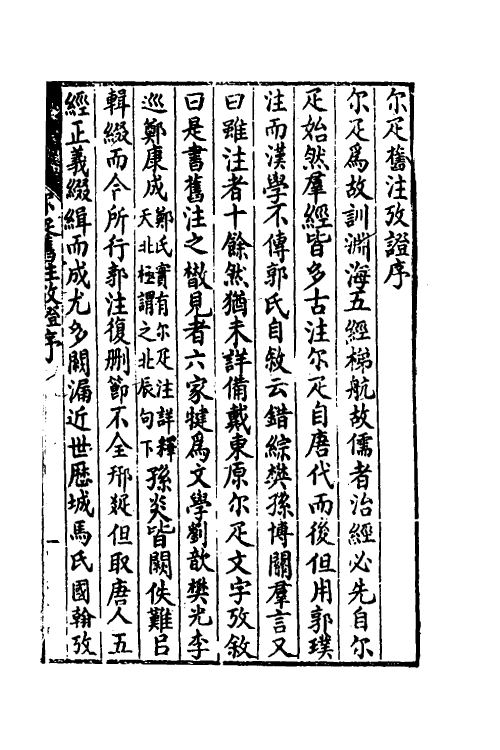 尔疋舊注攷證序
尔疋爲故訓淵海五經梯航故儒者治經必先自尔
疋始然羣經皆多古注尔疋自唐代而後但用郭璞
注而漢學不傳郭氏自敘云錯綜樊孫博關羣言又
曰雖注者十餘然猶未詳備戴東原尔疋文字攷敘
曰是書舊注之㪚見者六家犍爲文學劉歆樊光李
巡鄭康成鄭氏實有尔疋注詳釋天北極謂之北辰句下孫炎皆闕佚難㠯
輯綴而今所行郭注復删節不全邢疏但取唐人五
經正義綴緝而成尤多闕漏近世歷城馬氏國翰攷
尔疋舊注攷證序
一